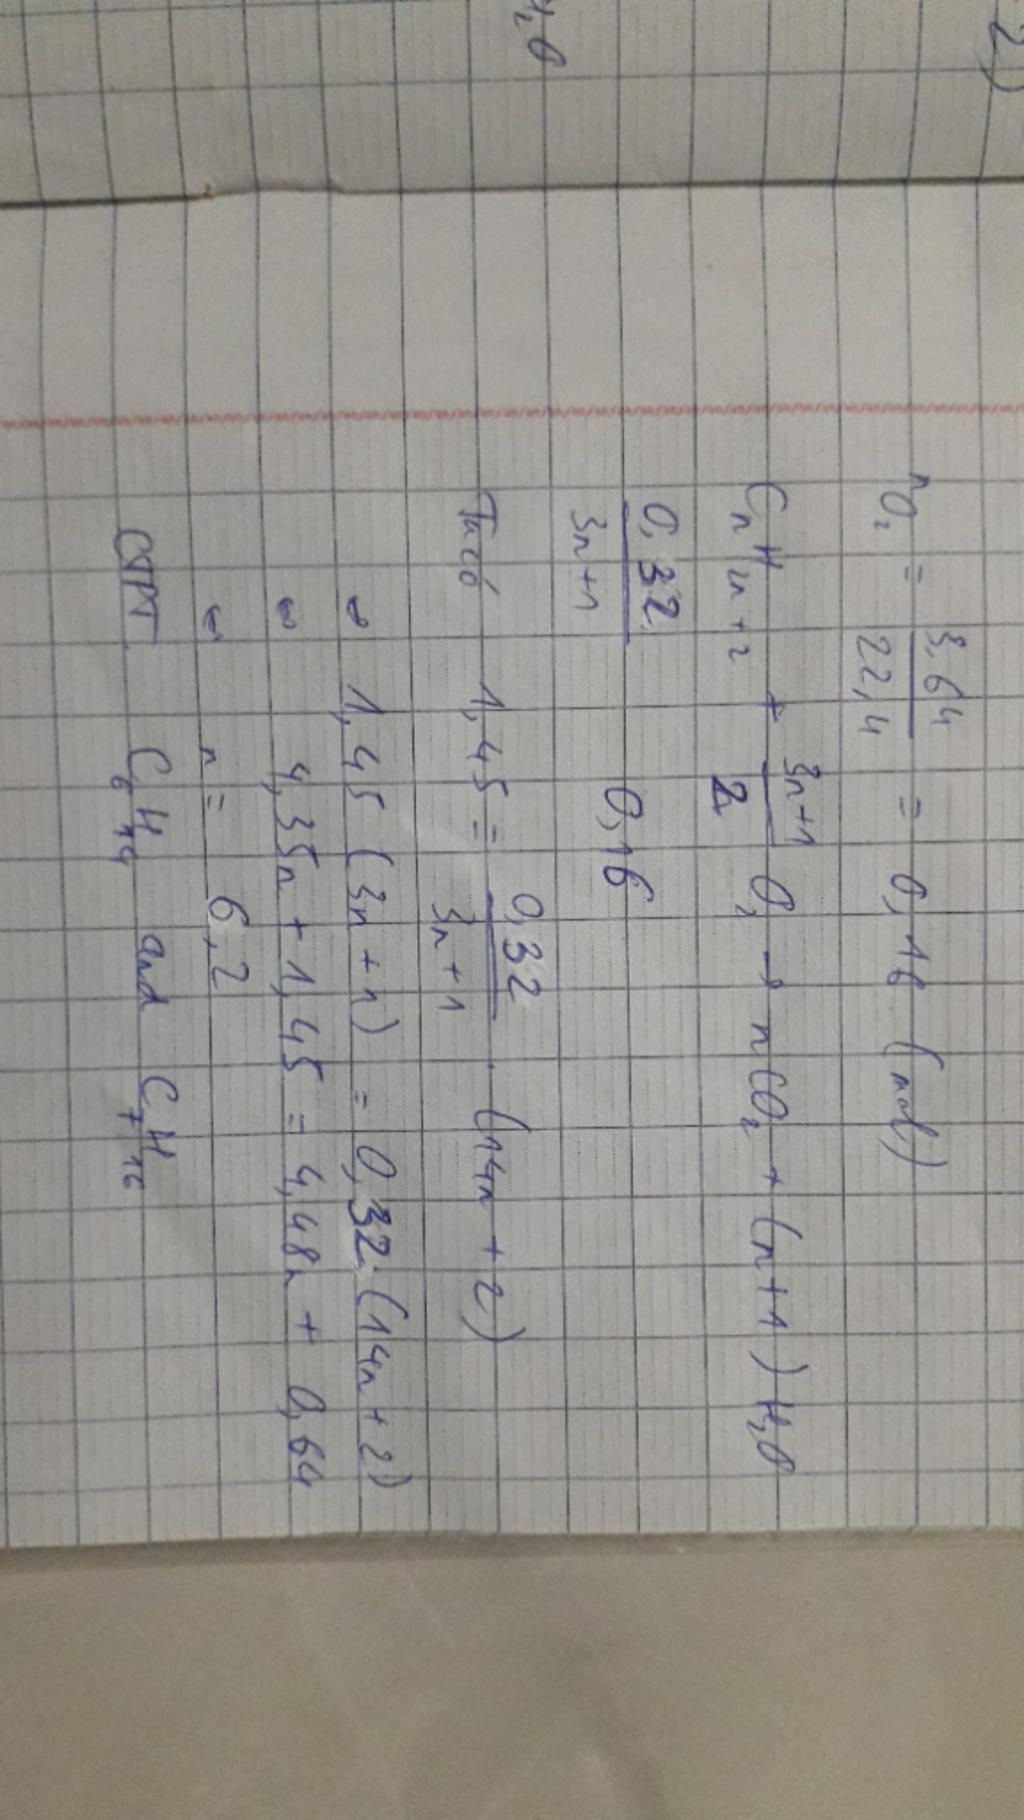 2)
H₂O
nO₂ = 3,64/22,4 = 0,16 (mol)
CnH2n+2 + 3n+1/2 O₂ → nCO₂ + (n+1) H₂O
0,32/3n+1 0,16
Ta có 1,45 = 0,32/3n+1 . (14n + 2)
⇔ 1,45 (3n + 1) = 0,32.(14n + 2)
⇔ 4,35n + 1,45 = 4,48n + 0,64
⇔ n = 6,2
CTPT C₆H₁₄ and C₇H₁₆